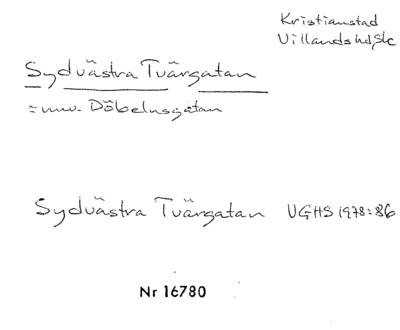 Kristianstad
Villands hd, Sk
Sydvästra Tvärgatan
= nuv. Döbelnsgatan
Sydvästra Tvärgatan UGHS 1978:86
Nr 16780